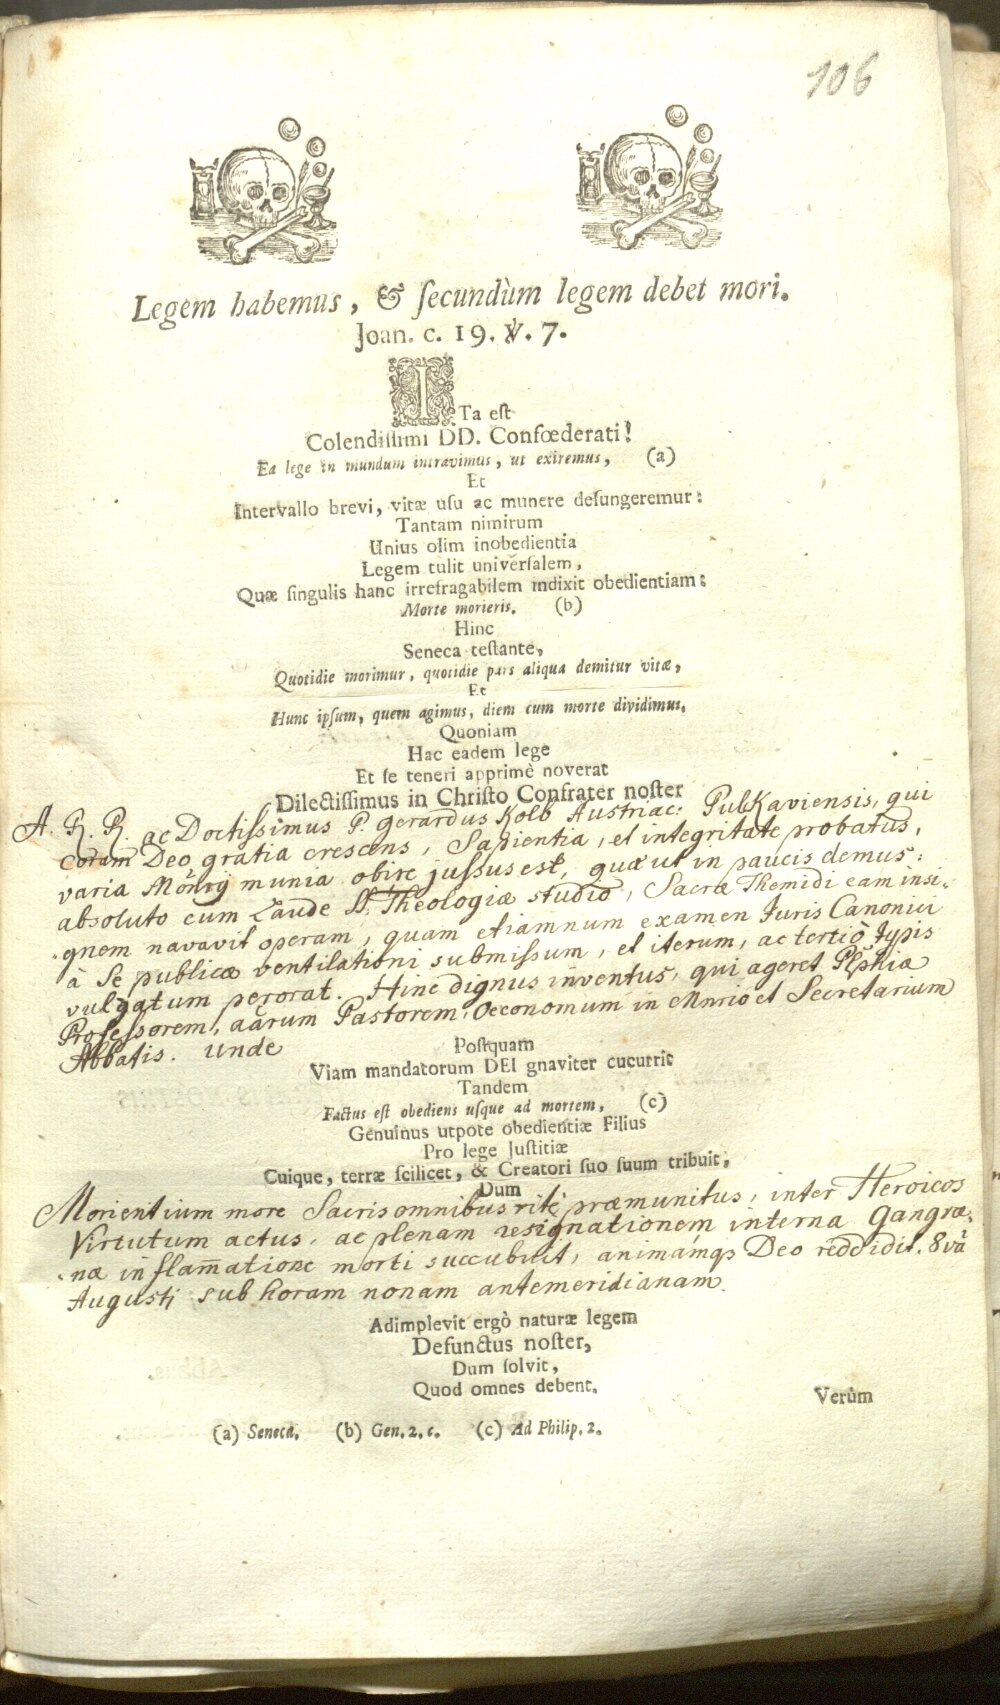 106
Legem habemus, & ſecundùm legem debet mori.
Joan. c. 19. ℣. 7.
ITa eſt
Colendiſſimi DD. Confœderati!
Ea lege in mundum intravimus, ut exiremus, (a)
Et
Intervallo brevi, vitæ uſu ac munere defungeremur:
Tantam nimirum
Unius olim inobedientia
Legem tulit univerſalem,
Quæ ſingulis hanc irrefragabilem indixit obedientiam:
Morte morieris. (b)
Hinc
Seneca teſtante,
Quotidie morimur, quotidie pars aliqua demitur vitæ,
Et
Hunc ipſum, quem agimus, diem cum morte dividimus.
Quoniam
Hac eadem lege
Et ſe teneri apprimè noverat
Dilectiſſimus in Chriſto Confrater noſter
A. R. R. ac Doctissimus P. Gerardus Kolb Austriac: Pulkaviensis, qui
coram Deo gratia crescens, Sapientia, et integritate probatus,
varia Monrÿ munia obire jussus est, quæ ut in paucis demus:
absoluto cum Laude SS. Theologiæ studio, Sacræ Themidi eam insi-
gnem navavit operam, quam etiamnum examen Juris Canonici
à Se publicæ ventilationi submissum, et iterum, ac tertiò Typis
vulgatum perorat. Hinc dignus inventus, qui ageret Plphiæ
Professorem, aarum Pastorem, Oeconomum in Mnrio et Secretarium
Abbatis. Unde
Poſtquam
Viam mandatorum DEI gnaviter cucurrit
Tandem
Factus eſt obediens uſque ad mortem, (c)
Genuinus utpote obedientiæ Filius
Pro lege Juſtitiæ
Cuique, terræ ſcilicet, & Creatori ſuo ſuum tribuit,
Dum
Morientium more Sacris omnibus ritè præmunitus, inter Heroicos
Virtutum actus, ac plenam resignationem interna Gangræ-
næ inflam̄atione morti succubuit, animamqꝫ Deo reddidit. 8vâ
Augusti sub horam nonam antemeridianam.
Adimplevit ergò naturæ legem
Defunctus noſter,
Dum ſolvit,
Quod omnes debent.
Verùm
(a) Seneca. (b) Gen. 2. c. (c) Ad Philip. 2.